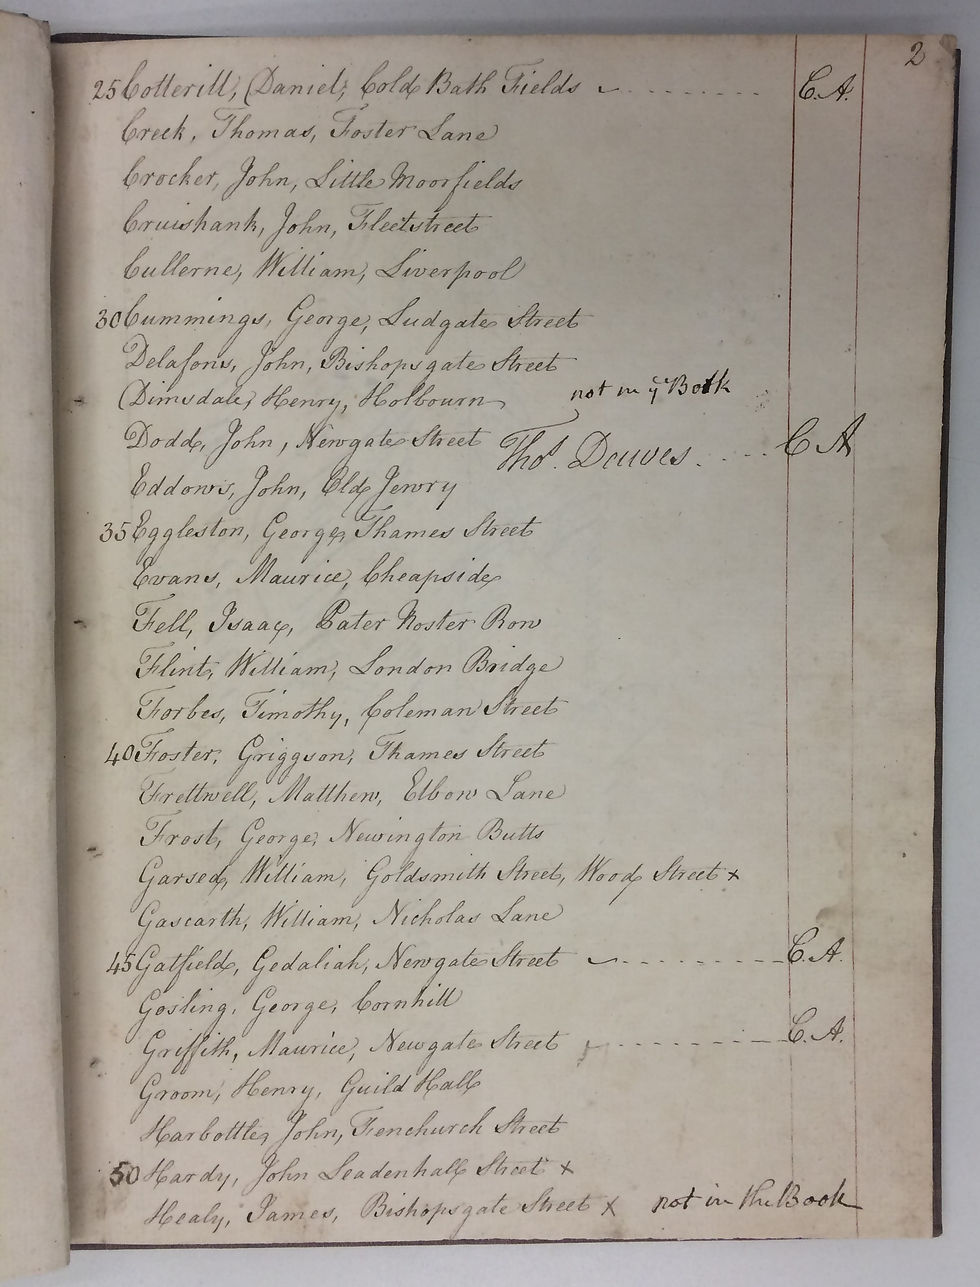 2
25 Cotterill, Daniel, Cold Bath Fields C.A.
Creek, Thomas, Foster Lane
Crocker, John, Little Moorfields
Cruishank, John, Fleetstreet
Cullerne, William, Liverpool
30 Cummings, George, Ludgate Street
Delafons, John, Bishopsgate Street
Dimsdale, Henry, Holbourn not in ye Book
Dodd, John, Newgate Street Thos. Dawes C A
Eddows, John, Old Jewry
35 Eggleston, George, Thames Street
Evans, Maurice, Cheapside
Fell, Isaac, Pater Noster Row
Flint, William, London Bridge
Forbes, Timothy, Coleman Street
40 Foster, Griggson, Thames Street
Frettwell, Matthew, Elbow Lane
Frost, George, Newington Butts
Garsed, William, Goldsmith Street, Wood Street x
Gascarth, William, Nicholas Lane
45 Gatfield, Gedaliah, Newgate Street C.A.
Gosling, George, Cornhill
Griffith, Maurice, Newgate Street C.A.
Groom, Henry, Guild Hall
Harbottle, John, Fenchurch Street
50 Hardy, John Leadenhall Street x
Healy, James, Bishopsgate Street x not in the Book